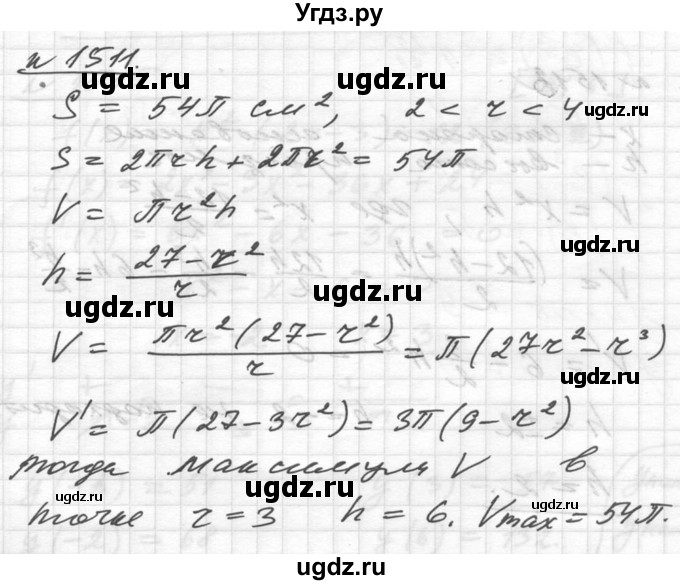 Угдз.ру
n 1511.
S = 54π см², 2 < r < 4
ugdz.ru
S = 2πrh + 2πr² = 54π
V = πr²h
ugdz.ru
h = (27 - r²)/r
ugdz.ru ugdz.ru
V = πr²(27 - r²)/r = π(27r² - r³)
ugdz.ru
V' = π(27 - 3r²) = 3π(9 - r²)
тогда максимум V в
ugdz.ru ugdz.ru
точке r = 3 h = 6. Vmax = 54π.
ugdz.ru ugdz.ru ugdz.ru